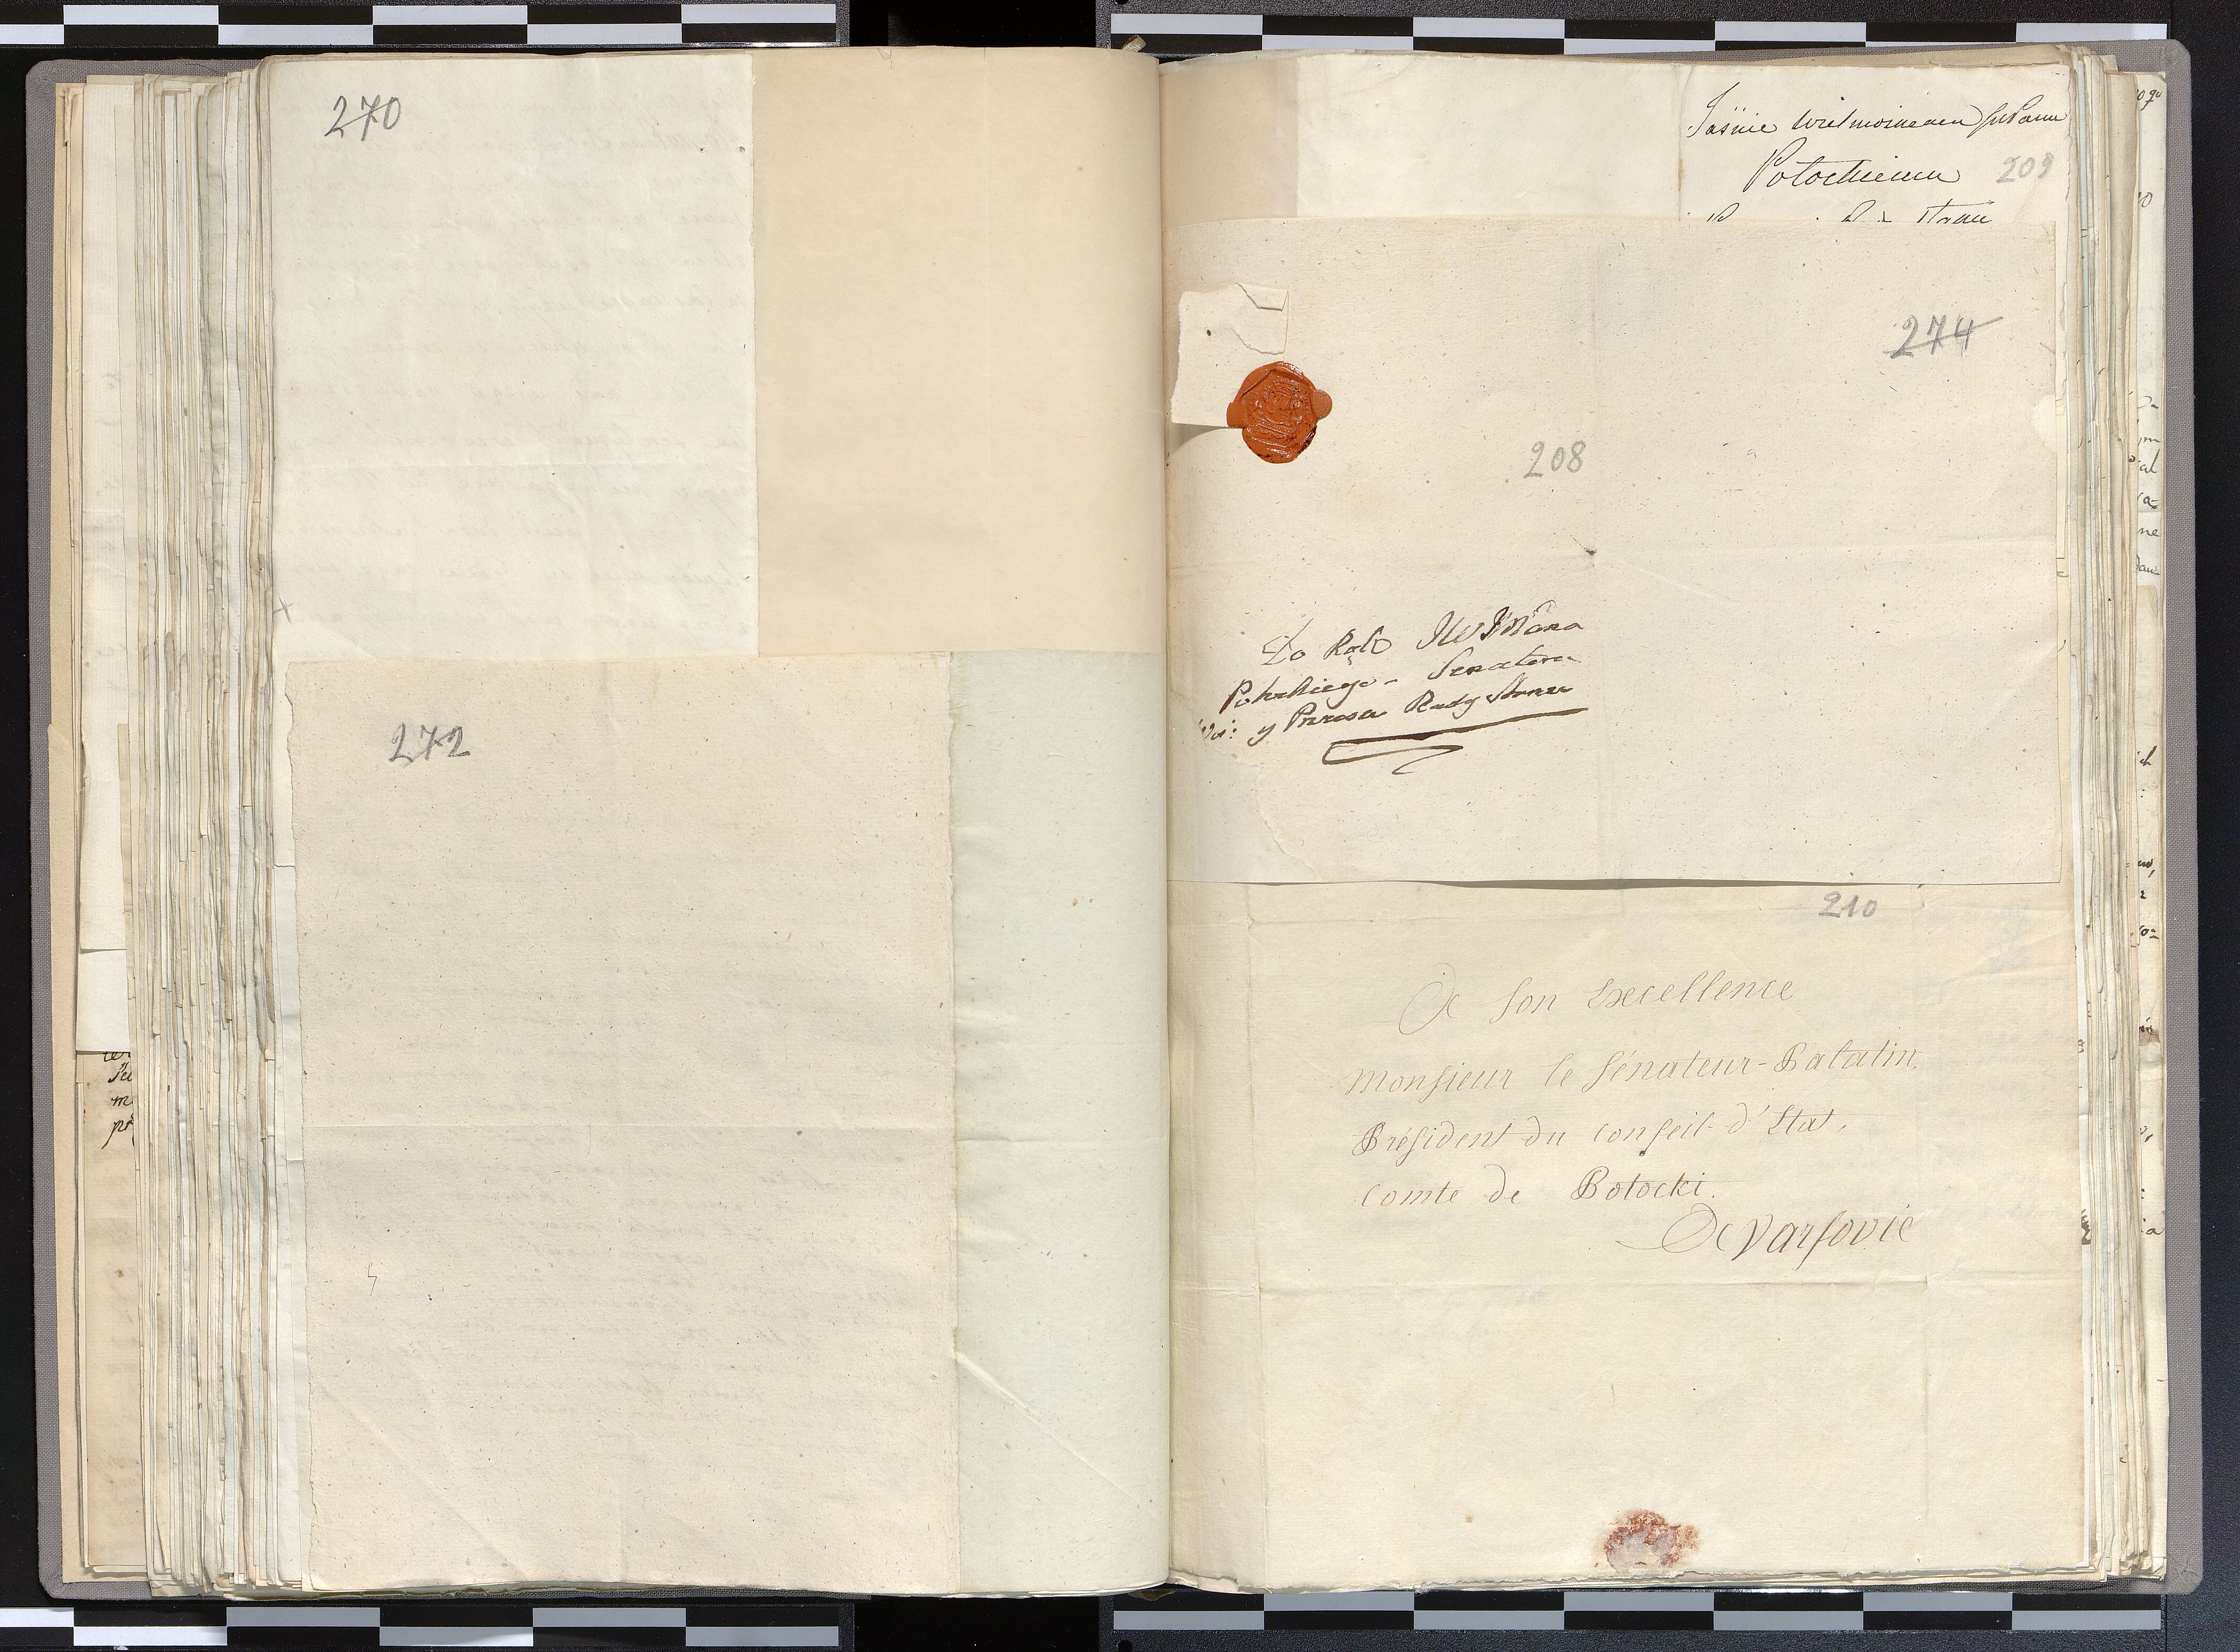 270
272
Jaśnie Wielmożnemu JmPanu
Potockiemu 209
Stanu
274
208
Do Rąk JW JMPana
Potockiego - Senatora
Woi: y Prezesa Rady Stanu
210
A Son Excellence
Monsieur le Sénateur-Palatin,
Président du Conseil d'Etat,
Comte de Potocki.
A Varsovie